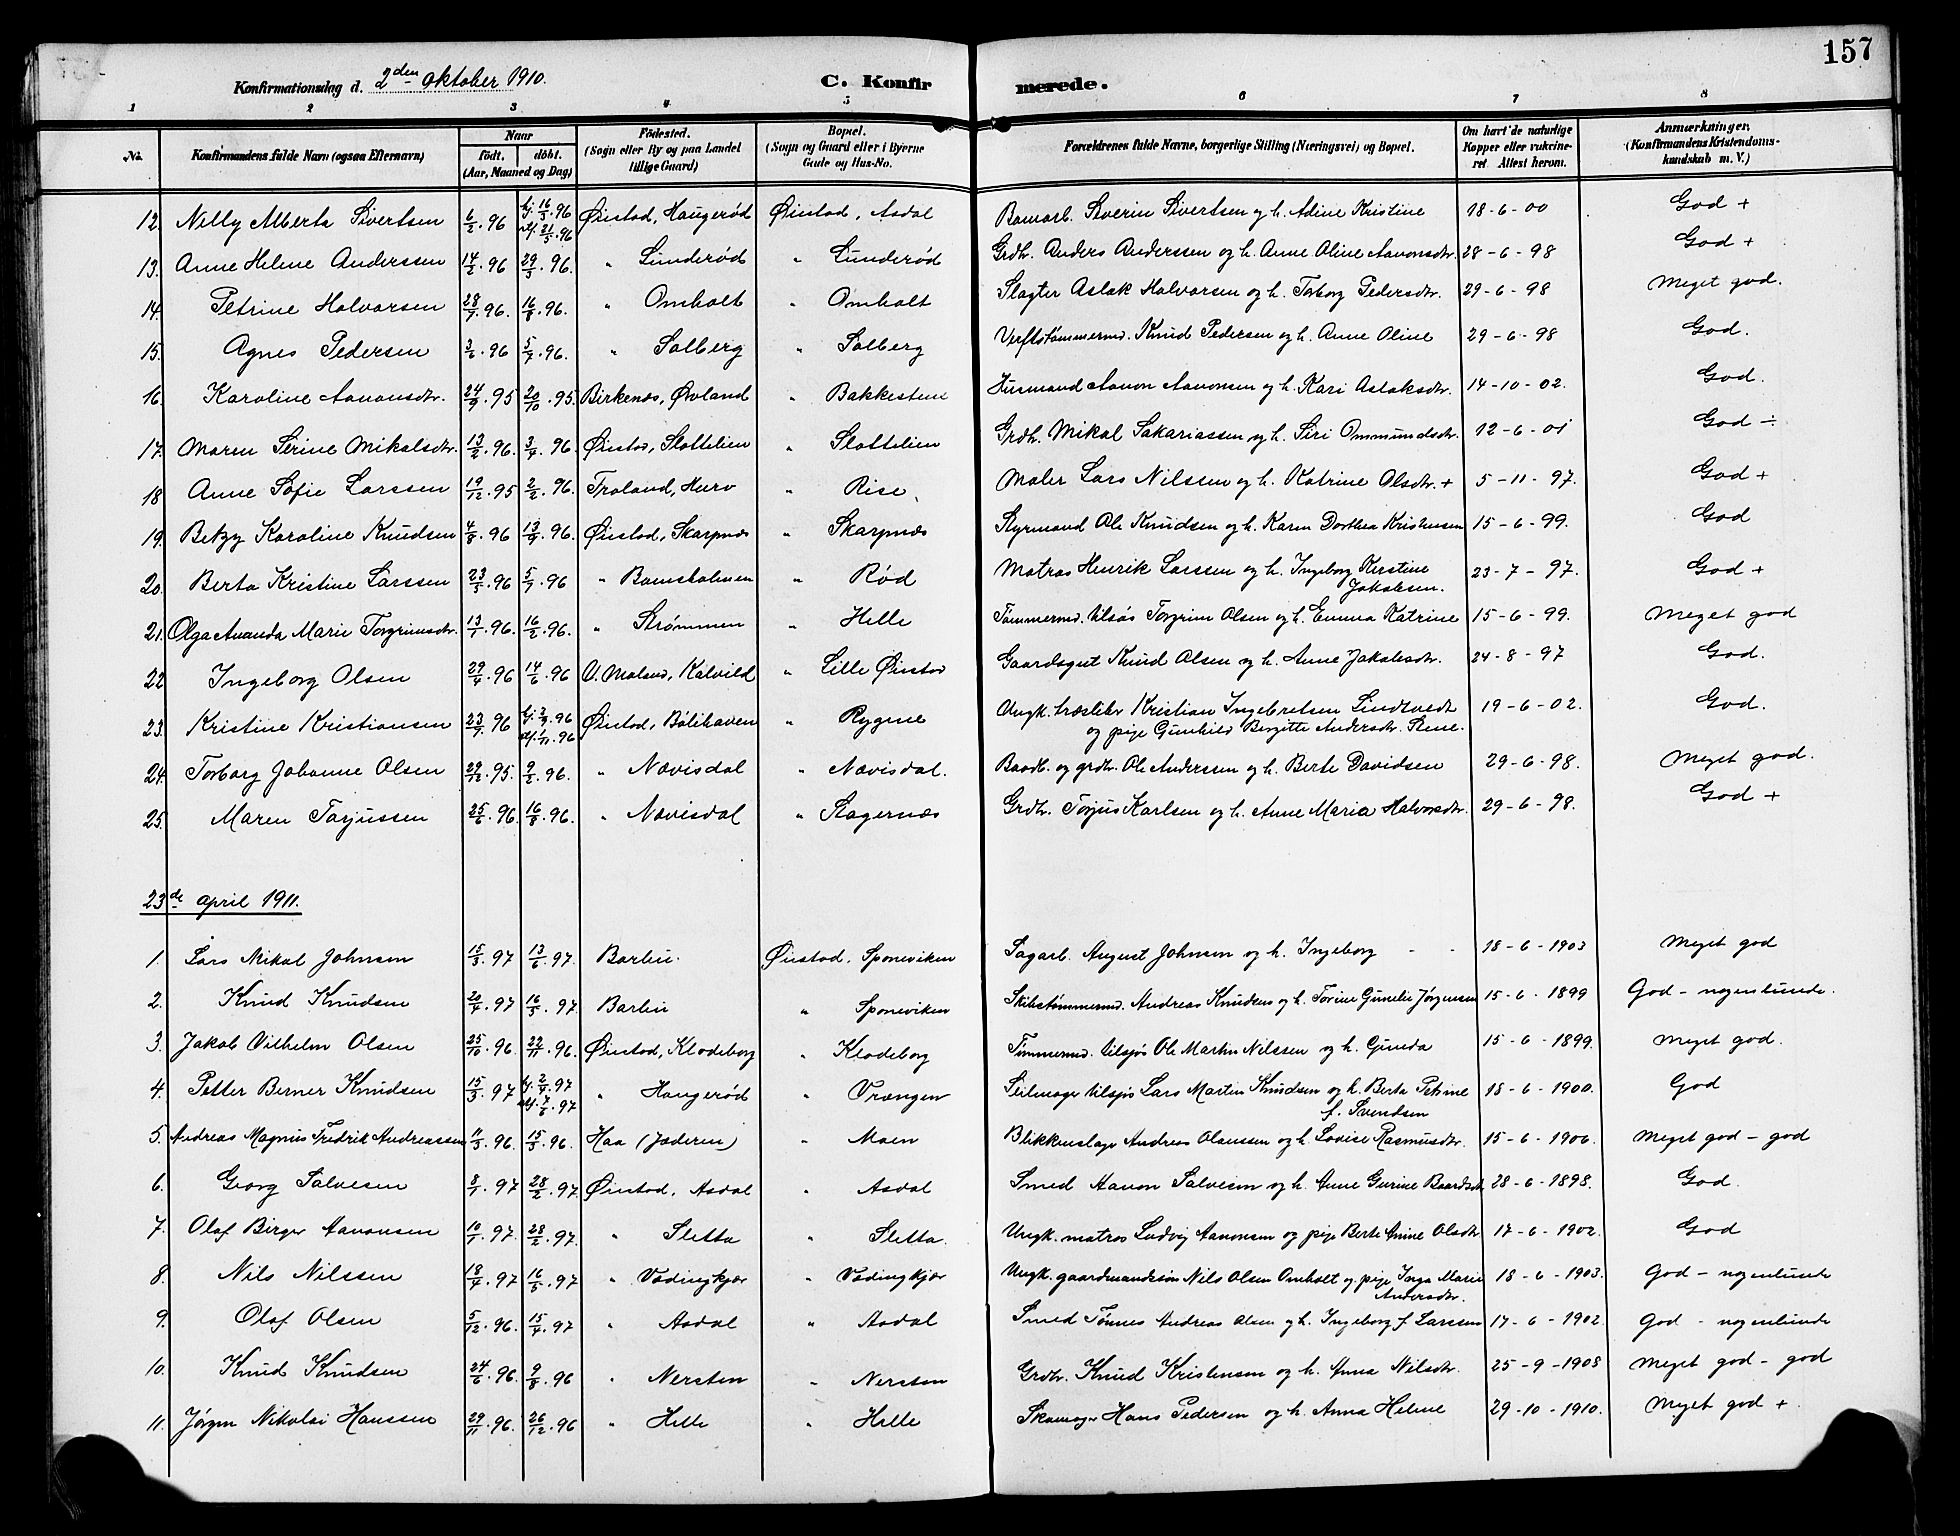 157
Konfirmationsdag d. 2den oktober 1910.
C. Konfirmerede.
1 2 3 4 5 6 7 8
No. Konfirmandens fulde Navn (ogsaa Efternavn) Naar født, døbt. (Aar, Maaned og Dag) Födested. (Sogn eller By og paa Landet tillige Gaard) Bopæl. (Sogn og Gaard eller i Byerne Gade og Hus-No. Forældrenes fulde Navne, borgerlige Stilling (Næringsvei) og Bopæl. Om havt de naturlige Kopper eller vakcineret Attest herom. Anmærkninger. (Konfirmandens Kristendomskundskab m. V.)
12. Nilly Alberta Sivertsen 6/2.96 hj. 16/3.96 21/5.96 Øiestad, Haugerød Øiestad, Asdal Severin Sivertsen og h. Adine Kristine 18-6-00 God +
13. Anne Helene Anderssen 14/2.96 29/3.96. " Lunderød " Lunderød Grdbr. Anders Anderssen og h. Anne Oline Aanonsdtr. 28-6-98 God +
14. Petrine Halvorsen 28/7.96. 16/8.96. " Omholt " Omholt Slagter Aslak Halvorsen og h. Torborg Pedersdtr. 29-6-98 Meget god.
15. Agnes Pedersen 3/6.96 5/7.96. " Solberg " Solberg Verftstømmermd. Knud Pedersen og h. Anne Oline 29-6-98 God.
16. Karoline Aanonsdtr. 24/9.95 20/10.95. Birkenæs, Øvland " Bakkestene Husmand Aanon Aanonsen og h. Kari Aslaksdtr. 14-10-02. God.
17. Maren Serine Mikalsdtr. 13/2.96. 3/4.96 Øiestad, Slottelien " Slottelien Grdbr. Mikal Sakariassen og h. Siri Ommundsdtr. 12-6-01 God ÷
18 Anne Sofie Larssen 19/12.95 2/2.96. Froland, Hurv " Rise. Maler Lars Nilssen og h. Katrine Olsdtr. + 5-11-97. God +
19. Betzy Karoline Knudsen 4/8.96 13/9.96. Øiestad, Skarpnæs " Skarpnæs Styrmand Ole Knudsen og h. Karen Dorthea Kristensen 15-6-99. God
20. Berta Kristine Larssen 23/5.96 5/7.96 " Bomsholmen " Rød Matros Henrik Larssen og h. Ingeborg Kirstine Jakobsen. 23-7-97. God +
21. Olga Amanda Marie Torgrimsdtr. 13/1.96. 16/2.96. " Strømmen " Helle Tømmermd. tilsøs Torgrim Olsen og h. Emma Katrine 15-6-99. Meget god
22 Ingeborg Olsen 29/4.96 14/6.96 Ø. Moland, Kalvild " Lille Øiestad Gaardsgut Knud Olsen og h. Anne Jakobsdtr. 24-8-97 God.
23. Kristine Kristiansen 23/7.96 hj. 2/9.96 1/11.96 Øiestad, Bølihaven " Rygene Ungk. træsliber Kristian Ingebretsen Lindtvedt og pige Gunhild Birgitte Andersdtr. 19-6-02. God.
24. Torborg Johanne Olsen 29/12.95. 9/2.96. " Nævisdal " Nævisdal. Baadb. og grdbr. Ole Anderssen og h. Berte Davidsen 29-6-98. Meget god.
25. Maren Torjussen 25/6.96 16/8.96. " Nævisdal " Stagernæs Grdbr. Torjus Karlsen og h. Anne Maria Halvorsdtr. 29-6-98. God +
23de april 1911.
1. Lars Mikal Johnsen 15/3.97 13/6.97. Barbu. Øiestad, Sponeviken Sagarb. August Johnsen og h. Ingeborg - - 18-6-1903 Meget god
2. Knud Knudsen 20/4.97 16/5.97. Barbu " Sponeviken Skibstømmermd. Andreas Knudsen og h. Torine Gunelie Jørgensen 15-6-1899 God - nogenlunde.
3. Jakob Vilhelm Olsen 25/10.96. 22/11.96. Øiestad, Klodeborg " Klodeborg Tømmermd. tilsjøs Ole Martin Nilssen og h. Gunda 15-6-1899. Meget god.
4. Petter Berner Knudsen 15/3.97 hj. 2/4.97 7/6.97 " Haugerød " Vrængen Seilmager tilsjøs Lars Martin Knudsen og h. Berta Petrine f. Svendsen 18-6-1900. God
5. Andreas Magnus Fredrik Andreassen 11/3.96. 15/3.96. Haa (Jæderen) " Moen Blikkenslager Andreas Olaussen og h. Lovise Rasmusdtr. 15-6-1906. Meget god - god
6. Georg Salvesen 8/1.97 28/2.97. Øiestad, Asdal " Asdal Smed Aanon Salvesen og h. Anne Gurine Baardsdtr 28-6-1898. God.
7. Olaf Birger Aanonsen 10/1.97. 28/2.97. " Sletta " Sletta. Ungk. matros Ludvig Aanonsen og pige Berte Anine Olsdtr 17-6-1902. God
8. Nils Nilssen 18/4.97 16/5.97 " Vædingkjær " Vædingkjær Ungk. gaardmandssøn Nils Olsen Omholt og pige Inga Marie Andersdtr. 18-6-1903. God - nogenlunde
9. Olaf Olsen 5/12.96. 15/4.97 " Asdal " Asdal Smed Tønnes Andreas Olsen og h. Ingeborg f. Larssen 17-6-1902. God - nogenlunde
10. Knud Knudsen 24/6.96. 9/8.96 " Nersten " Nersten Grdbr. Knud Kristensen og h. Anna Nilsdtr. 25-9-1908 Meget god - god
11. Jørgen Nikolai Hanssen 29/11.96. 26/12.96 " Helle " Helle Skomager Hans Pedersen og h. Anna Helene 29-10-1910. Meget god +.